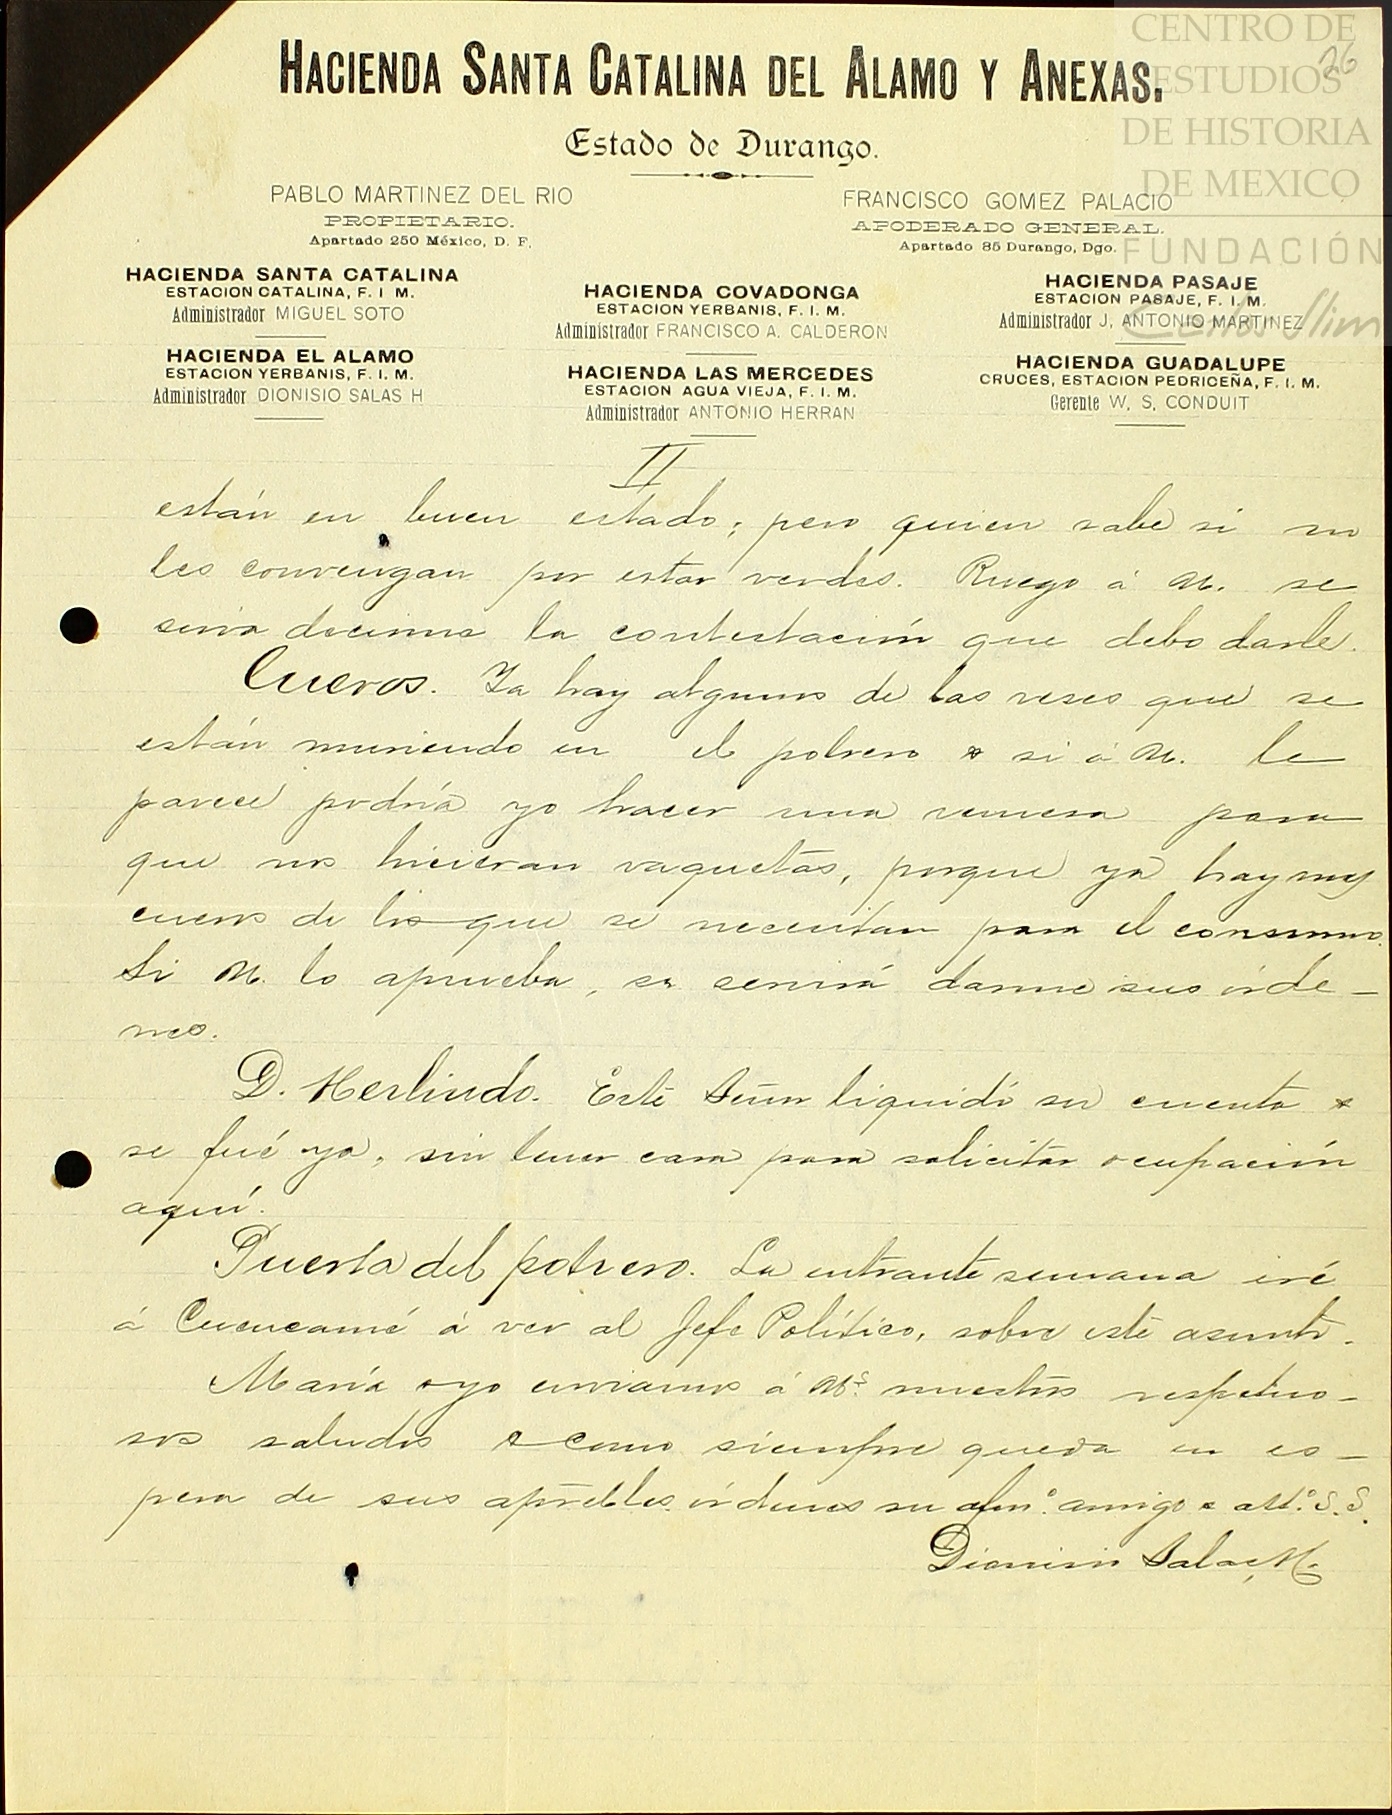 CENTRO DE
ESTUDIOS
DE HISTORIA
DE MEXICO
FUNDACIÓN
Carlos Slim
26
HACIENDA SANTA CATALINA DEL ALAMO Y ANEXAS.
Estado de Durango.
PABLO MARTINEZ DEL RIO
PROPIETARIO.
Apartado 250 México, D. F.
FRANCISCO GOMEZ PALACIO
APODERADO GENERAL.
Apartado 85 Durango, Dgo.
HACIENDA SANTA CATALINA
ESTACION CATALINA, F. I M.
Administrador MIGUEL SOTO
HACIENDA EL ALAMO
ESTACION YERBANIS, F. I. M.
Administrador DIONISIO SALAS H
HACIENDA COVADONGA
ESTACION YERBANIS, F. I. M.
Administrador FRANCISCO A. CALDERON
HACIENDA LAS MERCEDES
ESTACION AGUA VIEJA, F. I. M.
Administrador ANTONIO HERRAN
HACIENDA PASAJE
ESTACION PASAJE, F. I. M.
Administrador J. ANTONIO MARTINEZ
HACIENDA GUADALUPE
CRUCES, ESTACION PEDRICEÑA, F. I. M.
Gerente W. S. CONDUIT
II
están en buen estado; pero quien sabe si no
les convengan por estar verdes. Ruego á U. se
sirva decirme la contestación que debo darle.
Cueros. Ya hay algunos de las reses que se
están muriendo en el potrero y si á U. le
parece podría yo hacer una remesa para
que nos hicieran vaquetas, porque ya hay más
cueros de los que se necesitan para el consumo.
Si U. lo aprueba, se servirá darme sus órde-
nes.
D. Herlindo. Este Señor liquidó su cuenta y
se fué ya, sin tener cara para solicitar ocupación
aquí.
Puerta del potrero. La entrante semana iré
á Cuencamé á ver al Jefe Político, sobre este asunto.
María y yo enviamos á Us. nuestros respetuo-
sos saludos y como siempre queda en es-
pera de sus aprebles. órdenes su afmo. amigo y atto. S. S.
Dionisio Salas H.